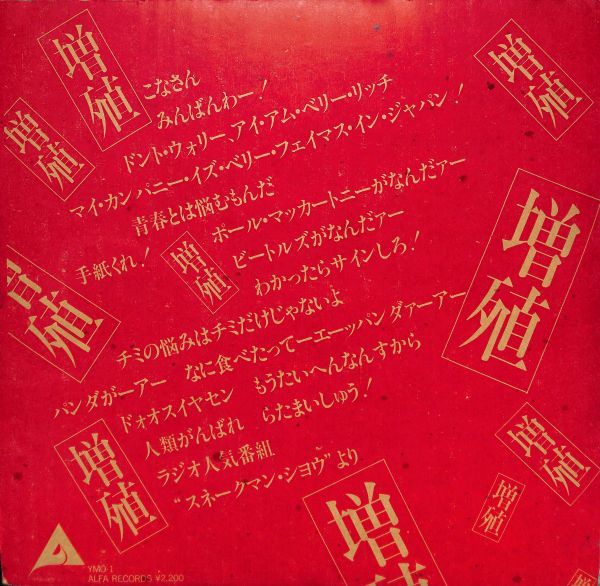 増殖
増殖
増殖
こなさん
みんばんわー!
ドント・ウォリー、アイ・アム・ベリー・リッチ
マイ・カンパニー・イズ・ベリー・フェイマス・イン・ジャパン!
青春とは悩むもんだ
ポール・マッカートニーがなんだァー
手紙くれ!
増殖
ビートルズがなんだァー
わかったらサインしろ!
増殖
増殖
チミの悩みはチミだけじゃないよ
パンダがーアー なに食べたってーエーッパンダァーアー
ドォオスイヤセン もうたいへんなんすから
人類がんばれ らたまいしゅう!
ラジオ人気番組
“スネークマン・ショウ”より
増殖
増殖
増殖
増殖
増
YMO-1
ALFA RECORDS ¥2,200